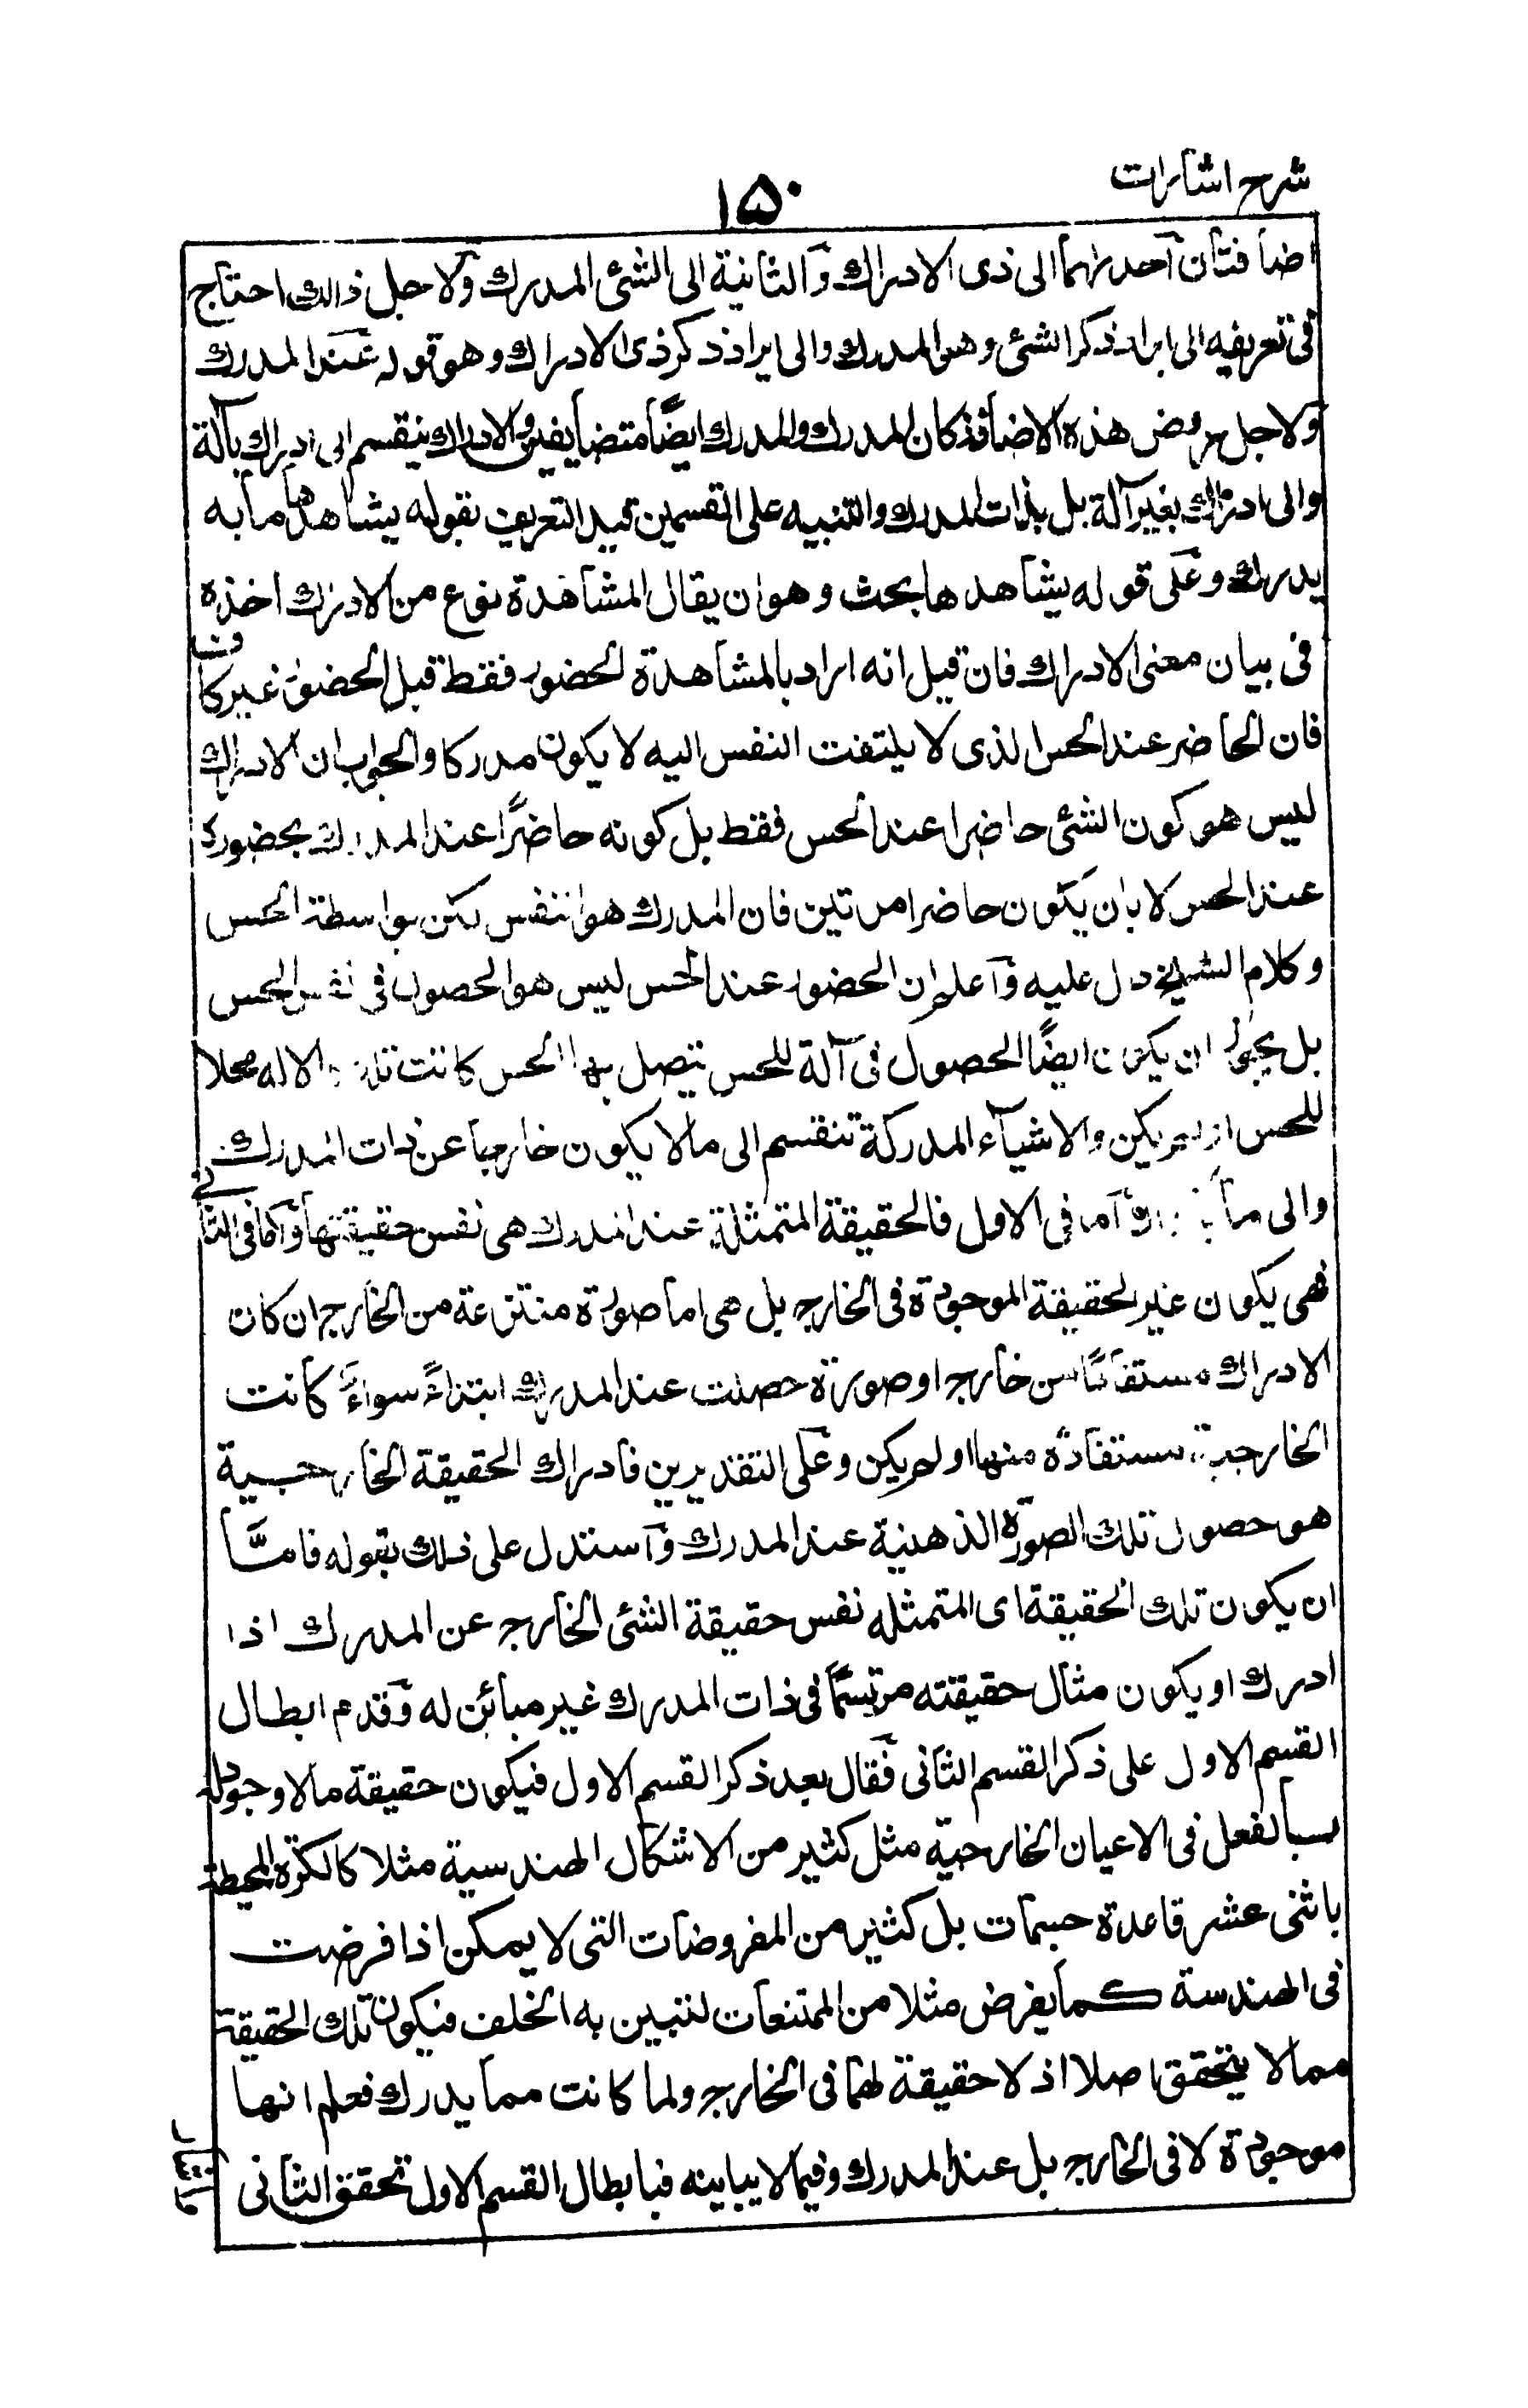 شرح اشارات
١٥٠
اضافتان احدىهما الى ذى الادراك والثانية الى الشئ المدرك ولاجل ذالك احتاج
فى تعريفه الى ايراد ذكر الشئ وهو المدرك والى ايراد ذكر ذى الادراك وهو قوله عند المدرك
ولاجل عروض هذه الاضافة كان المدرك والمدرك ايضًا متضايفين والادراك ينقسم الى ادراك بآلة
والى ادراك بغير آلة بل بذات المدرك والتنبيه على القسمين قيد التعريف بقوله يشاهدها ما به
يدرك وعلى قوله يشاهدها بحث وهو ان يقال المشاهدة نوع من الادراك اخذه
فى بيان معنى الادراك فان قيل انه اراد بالمشاهدة الحضور فقط قيل الحضور غير كاف
فان الحاضر عند الحس الذى لا يلتفت النفس اليه لا يكون مدركا والجواب ان الادراك
ليس هو كون الشئ حاضرا عند الحس فقط بل كونه حاضرًا عند المدرك بحضوره
عند الحس لا بان يكون حاضرا مرتين فان المدرك هو النفس لكن بواسطة الحس
وكلام الشيخ دل عليه واعلم ان الحضور عند الحس ليس هو الحصول فى نفس الحس
بل يجوز ان يكون ايضًا الحصول فى آلة للحس يتصل بها الحس كانت تلك الاله محلا
للحس او لم يكن والاشياء المدركة تنقسم الى ما لا يكون خارجا عن ذات المدرك
والى ما اما فى الاول فالحقيقة المتمثلة عند المدرك هى نفس حقيقتها واما فى الثانى
فهى يكون غير الحقيقة الموجودة فى الخارج بل هى اما صورة منتزعة من الخارج ان كان
الادراك مستفادًا من خارج او صورة حصلت عند المدرك ابتداءً سواءً كانت
الخارجية مستفادة منها او لم يكن وعلى التقديرين فادراك الحقيقة الخارجية
هو حصول تلك الصورة الذهنية عند المدرك واستدل على ذلك بقوله فامَّا
ان يكون تلك الحقيقة اى المتمثله نفس حقيقة الشئ الخارج عن المدرك اذا
ادرك او يكون مثال حقيقته مرتسمًا فى ذات المدرك غير مبائن له وقدم ابطال
القسم الاول على ذكر القسم الثانى فقال بعد ذكر القسم الاول فيكون حقيقة ما لا وجود له
بالفعل فى الاعيان الخارجية مثل كثير من الاشكال الهندسية مثلا كالكرة المحيطة
باثنى عشر قاعدة مخمسات بل كثير من المفروضات التى لا يمكن اذا فرضت
فى الهندسة كما يفرض مثلا من الممتنعات لنتبين به الخلف فيكون تلك الحقيقة
مما لا يتحقق اصلا اذ لا حقيقة لها فى الخارج ولما كانت مما يدرك فعلم انها
موجودة لا فى الخارج بل عند المدرك وفيما لا يباينه فبابطال القسم الاول تحقق الثانى